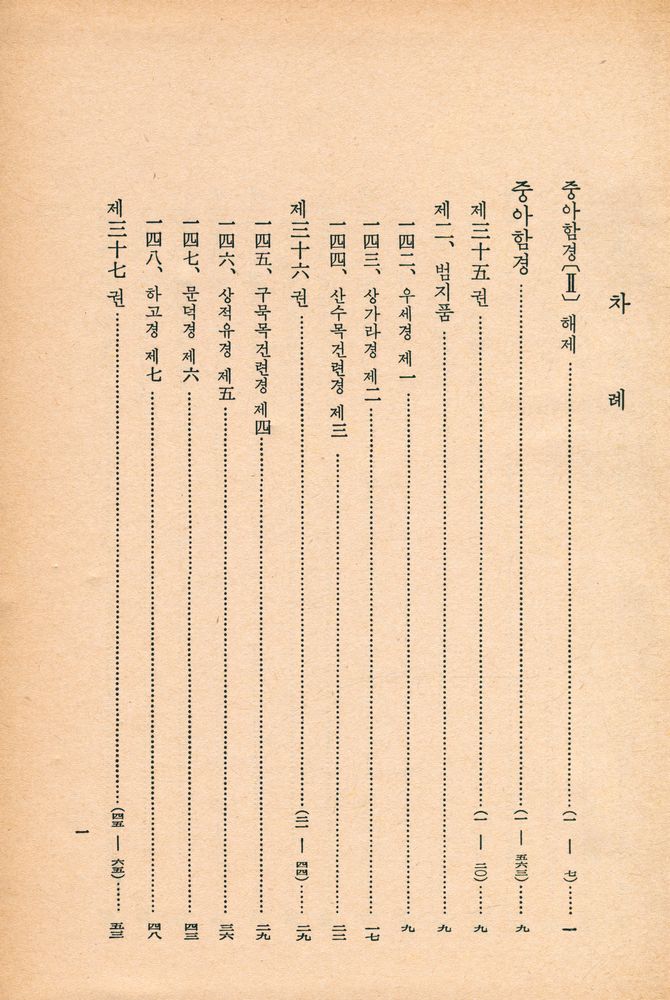 차 례
중아함경〔Ⅱ〕 해제 (一 — 七) 一
중아함경 (一 — 五六三) 九
제三十五권 (一 — 二〇) 九
제二、 범지품 九
一四二、 우세경 제一 九
一四三、 상가라경 제二 一七
一四四、 산수목건련경 제三 二三
제三十六권 (二一 — 四四) 二九
一四五、 구묵목건련경 제四 二九
一四六、 상적유경 제五 三六
一四七、 문덕경 제六 四三
一四八、 하고경 제七 四八
제三十七권 (四五 — 六五) 五三
一